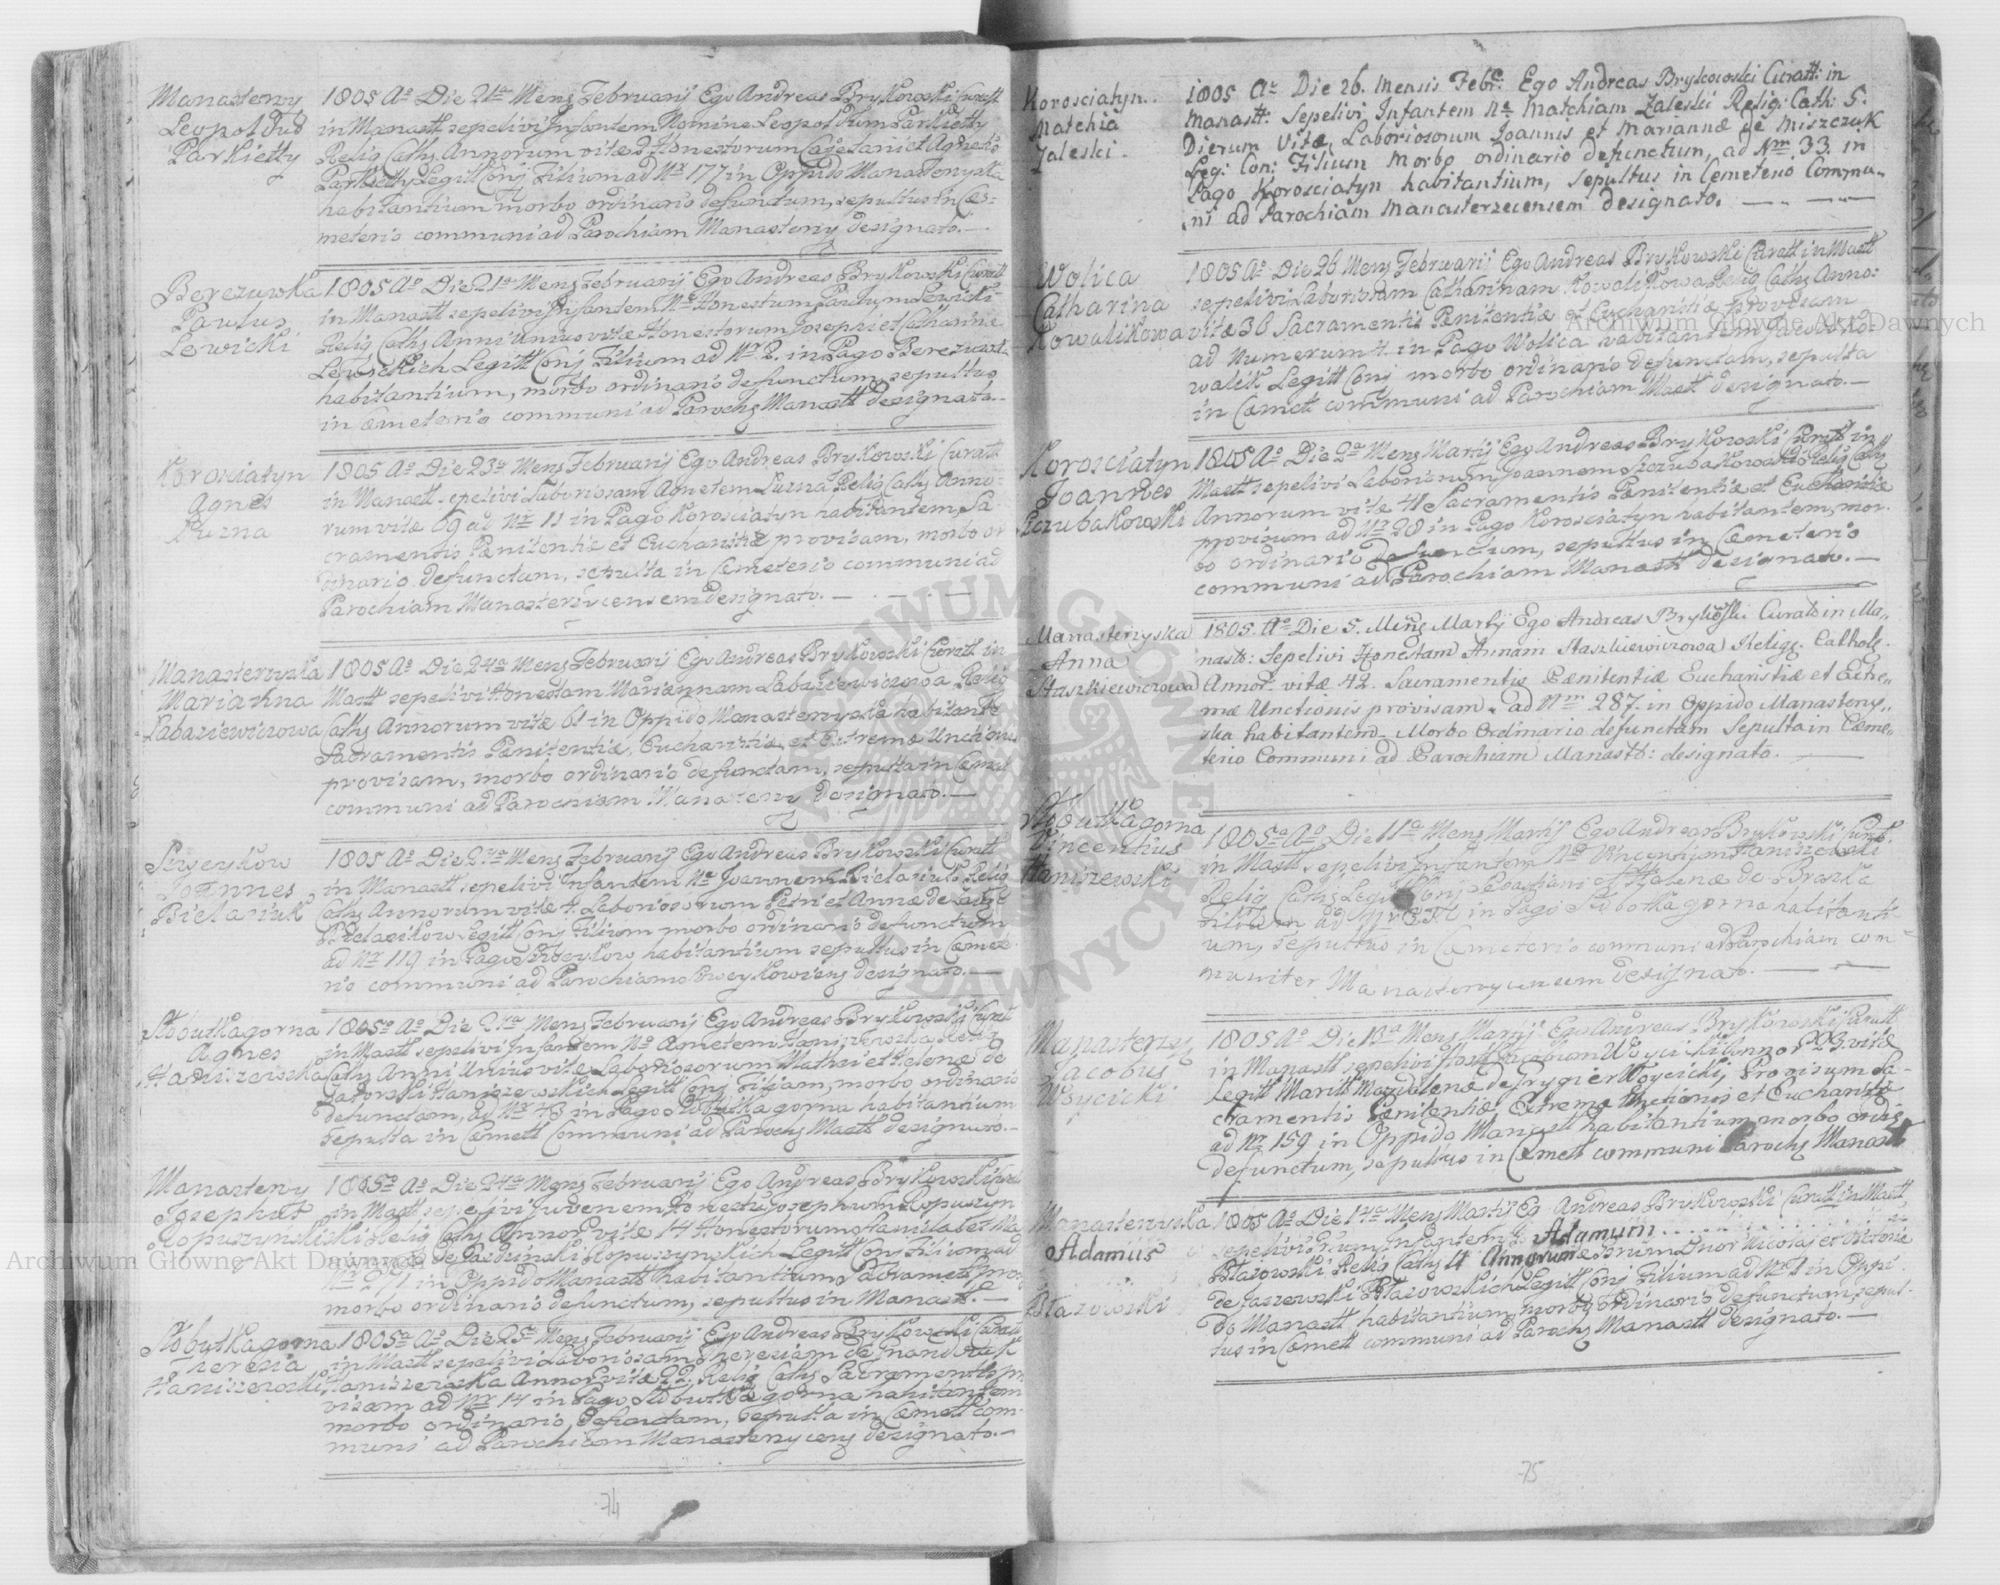 Manasterzy
Leopoldus
Parkietty
1805 Ao Die 21ma Mens Februarij Ego Andreas Brykowski Curatt
in Manastt sepelivi Infantem Nomine Leopoldum Parkietty
Relig Cath Annorum vitæ Honestorum Cajetani et Agnetis
Parkietty Legitt Conj Filium ad Nr 177 in Oppido Manasterzyska
habitantium morbo ordinario defunctum, sepultus in Cæ-
meterio communi ad Parochiam Manasterzy designato.—
Berezuwka
Paulus
Lewicki
1805 Ao Die 21a Mens Februarij Ego Andreas Brykowski Curatt
in Manastt sepelivi Infantem Ne Honestum Paulum Lewicki
Relig Cath Anni unius vitæ Honestorum Josephi et Catharinæ
Lewickich Legitt Conj Filium ad Nr 2. in Pago Berezuwka
habitantium, morbo ordinario defunctum, sepultus
in Cæmeterio communi ad Paroch Manastt designato.
Korosciatyn
Agnes
Luzna
1805 Ao Die 23a Mens Februarij Ego Andreas Brykowski Curatt
in Manastt sepelivi Laboriosam Agnetem Luzna Relig Cath Anno-
rum vitæ 69 ad Nr 11 in Pago Korosciatyn habitantem, Sa-
cramentis Pænitentiæ et Eucharistiæ provisam, morbo or
dinario defunctam, sepulta in Cæmeterio communi ad
Parochiam Manasterzycensem designato. — . — . —
Manasterzyska
Marianna
Labaziewiczowa
1805 Ao Die 24a Mens Februarij Ego Andreas Brykowski Curatt in
Mastt sepelivi Honestam Mariannam Labaziewiczowa Relig
Cath Annorum vitæ 61 in Oppido Manasterzyska habitante
Sacramentis Pænitentiæ, Eucharistiæ, et Extremæ Unctionis
provisam, morbo ordinario defunctam, sepulta in Cæmett
communi ad Parochiam Manasterzy designato.—
Joannes
Bielaziuk
1805 Ao Die 24a Mens Februarij Ego Andreas Brykowski Curatt
in Manastt sepelivi Infantem Ne Joannem Bielaziuk Relig
Cath Annorum vitæ 4. Laboriosorum Petri et Annæ de
Legitt Conj Filium morbo ordinario defunctum
ad Nr 119 in Pago habitantium sepultus in Cæmete
rio communi ad Parochiam designato.—
Słobutkagorna
Agnes
Haniszewska
1805o Ao Die 24a Mens Februarij Ego Andreas Brykowski Curatt
in Mastt sepelivi Infantem Ne Agnetem Haniszewska Relig
Cath Anni Unius vitæ Laboriosorum Mathei et Helenæ de
Haniszewskich Legitt Conj Filiam, morbo ordinario
defunctam, ad Nr 43 in Pago Słobutkagorna habitantium
sepulta in Cæmett Communi ad Paroch Mastt designato.—
Manasterzy
Josephus
Łopuszynski
1805o Ao Die 24a Mens Februarij Ego Andreas Brykowski Curatt
in Mastt sepelivi Juvenem Honestum Josephum Łopuszyn
ski Relig Cath Annor vitæ 14 Honestorum Stanislai et
de Łopuszynskich Legitt Conj Filium ad
in Oppido Manastt habitantium, Sacramet prov
morbo ordinario defunctum, sepultus in Manastt.—
Słobutkagorna
Teresia
Haniszewski
1805a Ao Die 25 Mens Februarij Ego Andreas Brykowski Curatt
in Mastt sepelivi Laboriosam Theresiam de
Haniszewska Annor vitæ 22. Relig Cath Sacramentis pro
visam ad Nr 14 in Pago Słobutkagorna habitantem
morbo ordinario defunctam, sepulta in Cæmett com-
muni ad Parochiam Manasterzycens designato.—
74
Korosciatyn.
Matchia
Zaleski.
1805 Ao Die 26. Mensis Febr: Ego Andreas Brykowski Curatt: in
Manastt: Sepelivi Infantem Ne Matchiam Zaleski Relig: Cath: 5.
Dierum Vitæ, Laboriosorum Joannis et Mariannæ de Miszczuk
Leg: Con: Filium Morbo ordinario defunctum, ad Nm 33 in
Pago Korosciatyn habitantium, Sepultus in Cemeterio Commu-
ni ad Parochiam Manasterzecensem designato. — „ — „ —
Wolica
Catharina
Kowalikowa
1805 Ao Die 26 Mens Februarij Ego Andreas Brykowski Curatt in Mastt
sepelivi Laboriosam Catharinam Kowalikowa Relig Cath Anno-
vitæ 36 Sacramentis Pænitentiæ et Eucharistiæ provisam
ad Numerum 4. in Pago Wolica habitantem Jacobi Ko-
walik Legitt Conj morbo ordinario defunctam, sepulta
in Cæmett communi ad Parochiam Mastt designato.—
Korosciatyn
Joannes
Szczubakowski
1805 Ao Die 2a Mens Martij Ego Andreas Brykowski Curatt in
Mastt sepelivi Laboriosum Joannem Szczubakowski Relig Cath
Annorum vitæ 41 Sacramentis Pænitentiæ et Eucharistiæ
provisum ad Nr 28 in Pago Korosciatyn habitantem, mor-
bo ordinario defunctum, sepultus in Cæmeterio
communi ad Parochiam Manastt designato.—
Manasterzyska
Anna
Staszkiewiczowa
1805. Ao Die 5. Mens Martij Ego Andreas Brykowski Curato in Ma„
nastt: Sepelivi Honestam Annam Staszkiewiczowa Relig. Cathol.
Annor. vitæ 42. Sacramentis Pænitentiæ Eucharistiæ et Extre„
mæ Unctionis provisam. ad Nrm 287. in Oppido Manasterzy„
ska habitantem. Morbo Ordinario defunctam Sepulta in Cæme„
terio Communi ad Parochiam Manastt: designato. —
Słobutkagorna
Vincentius
Haniszewski
1805a Ao Die 11a Mens Martij Ego Andreas Brykowski Curatt.
in Mastt sepelivi Infantem Ne Vincentium Haniszewski
Relig Cath Legitt Conj Sebastiani et Helenæ de Broszka
Filium ad Nr in Pago Słobotkagorna habitanti-
um, sepultus in Cæmeterio communi ad Parochiam com
muniter Manasterzycensem designato. — —
Manasterzy
Jacobus
Woycicki
1805 Ao Die 13a Mens Martij Ego Andreas Brykowski Curatt
in Manastt sepelivi Honestt Jacobum Woycicki Annor vitæ
Legitt Maritt Magdalenæ de Frygier Woycicki, Provisum Sa-
cramentis Pænitentiæ, Extremæ Unctionis et Eucharistiæ
ad Nr 159 in Oppido Manastt habitantium morbo ordin
defunctum, sepultus in Cæmett communi Paroch Manastt
Manasterzyska
Adamus
Błazowski
1805 Ao Die 14a Mens Martij Ego Andreas Brykowski Curatt in Mastt
sepelivi Infantem Adamum
Błazowski Relig Cath Annorum Dnor Nicolai et Victoriæ
de Błazowskich Legitt Conj Filium ad Nr 1 in Oppi
do Manastt habitantium, morbo ordinario defunctum, sepul-
tus in Cæmett communi ad Paroch Manastt designato.—
75
Archiwum Główne Akt Dawnych
Archiwum Główne Akt Dawnych
ARCHIWUM GŁÓWNE AKT DAWNYCH